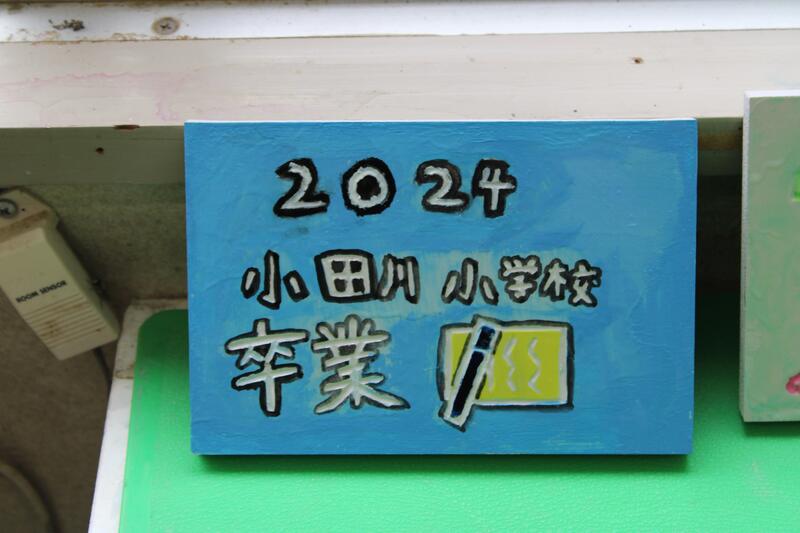 2024
小田川 小学校
卒業
ROOM SENSOR